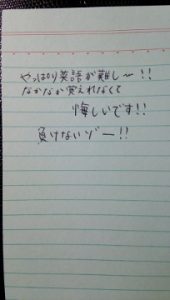 やっぱり英語が難し〜!!
なかなか覚えれなくて
悔しいです!!
負けないゾー!!